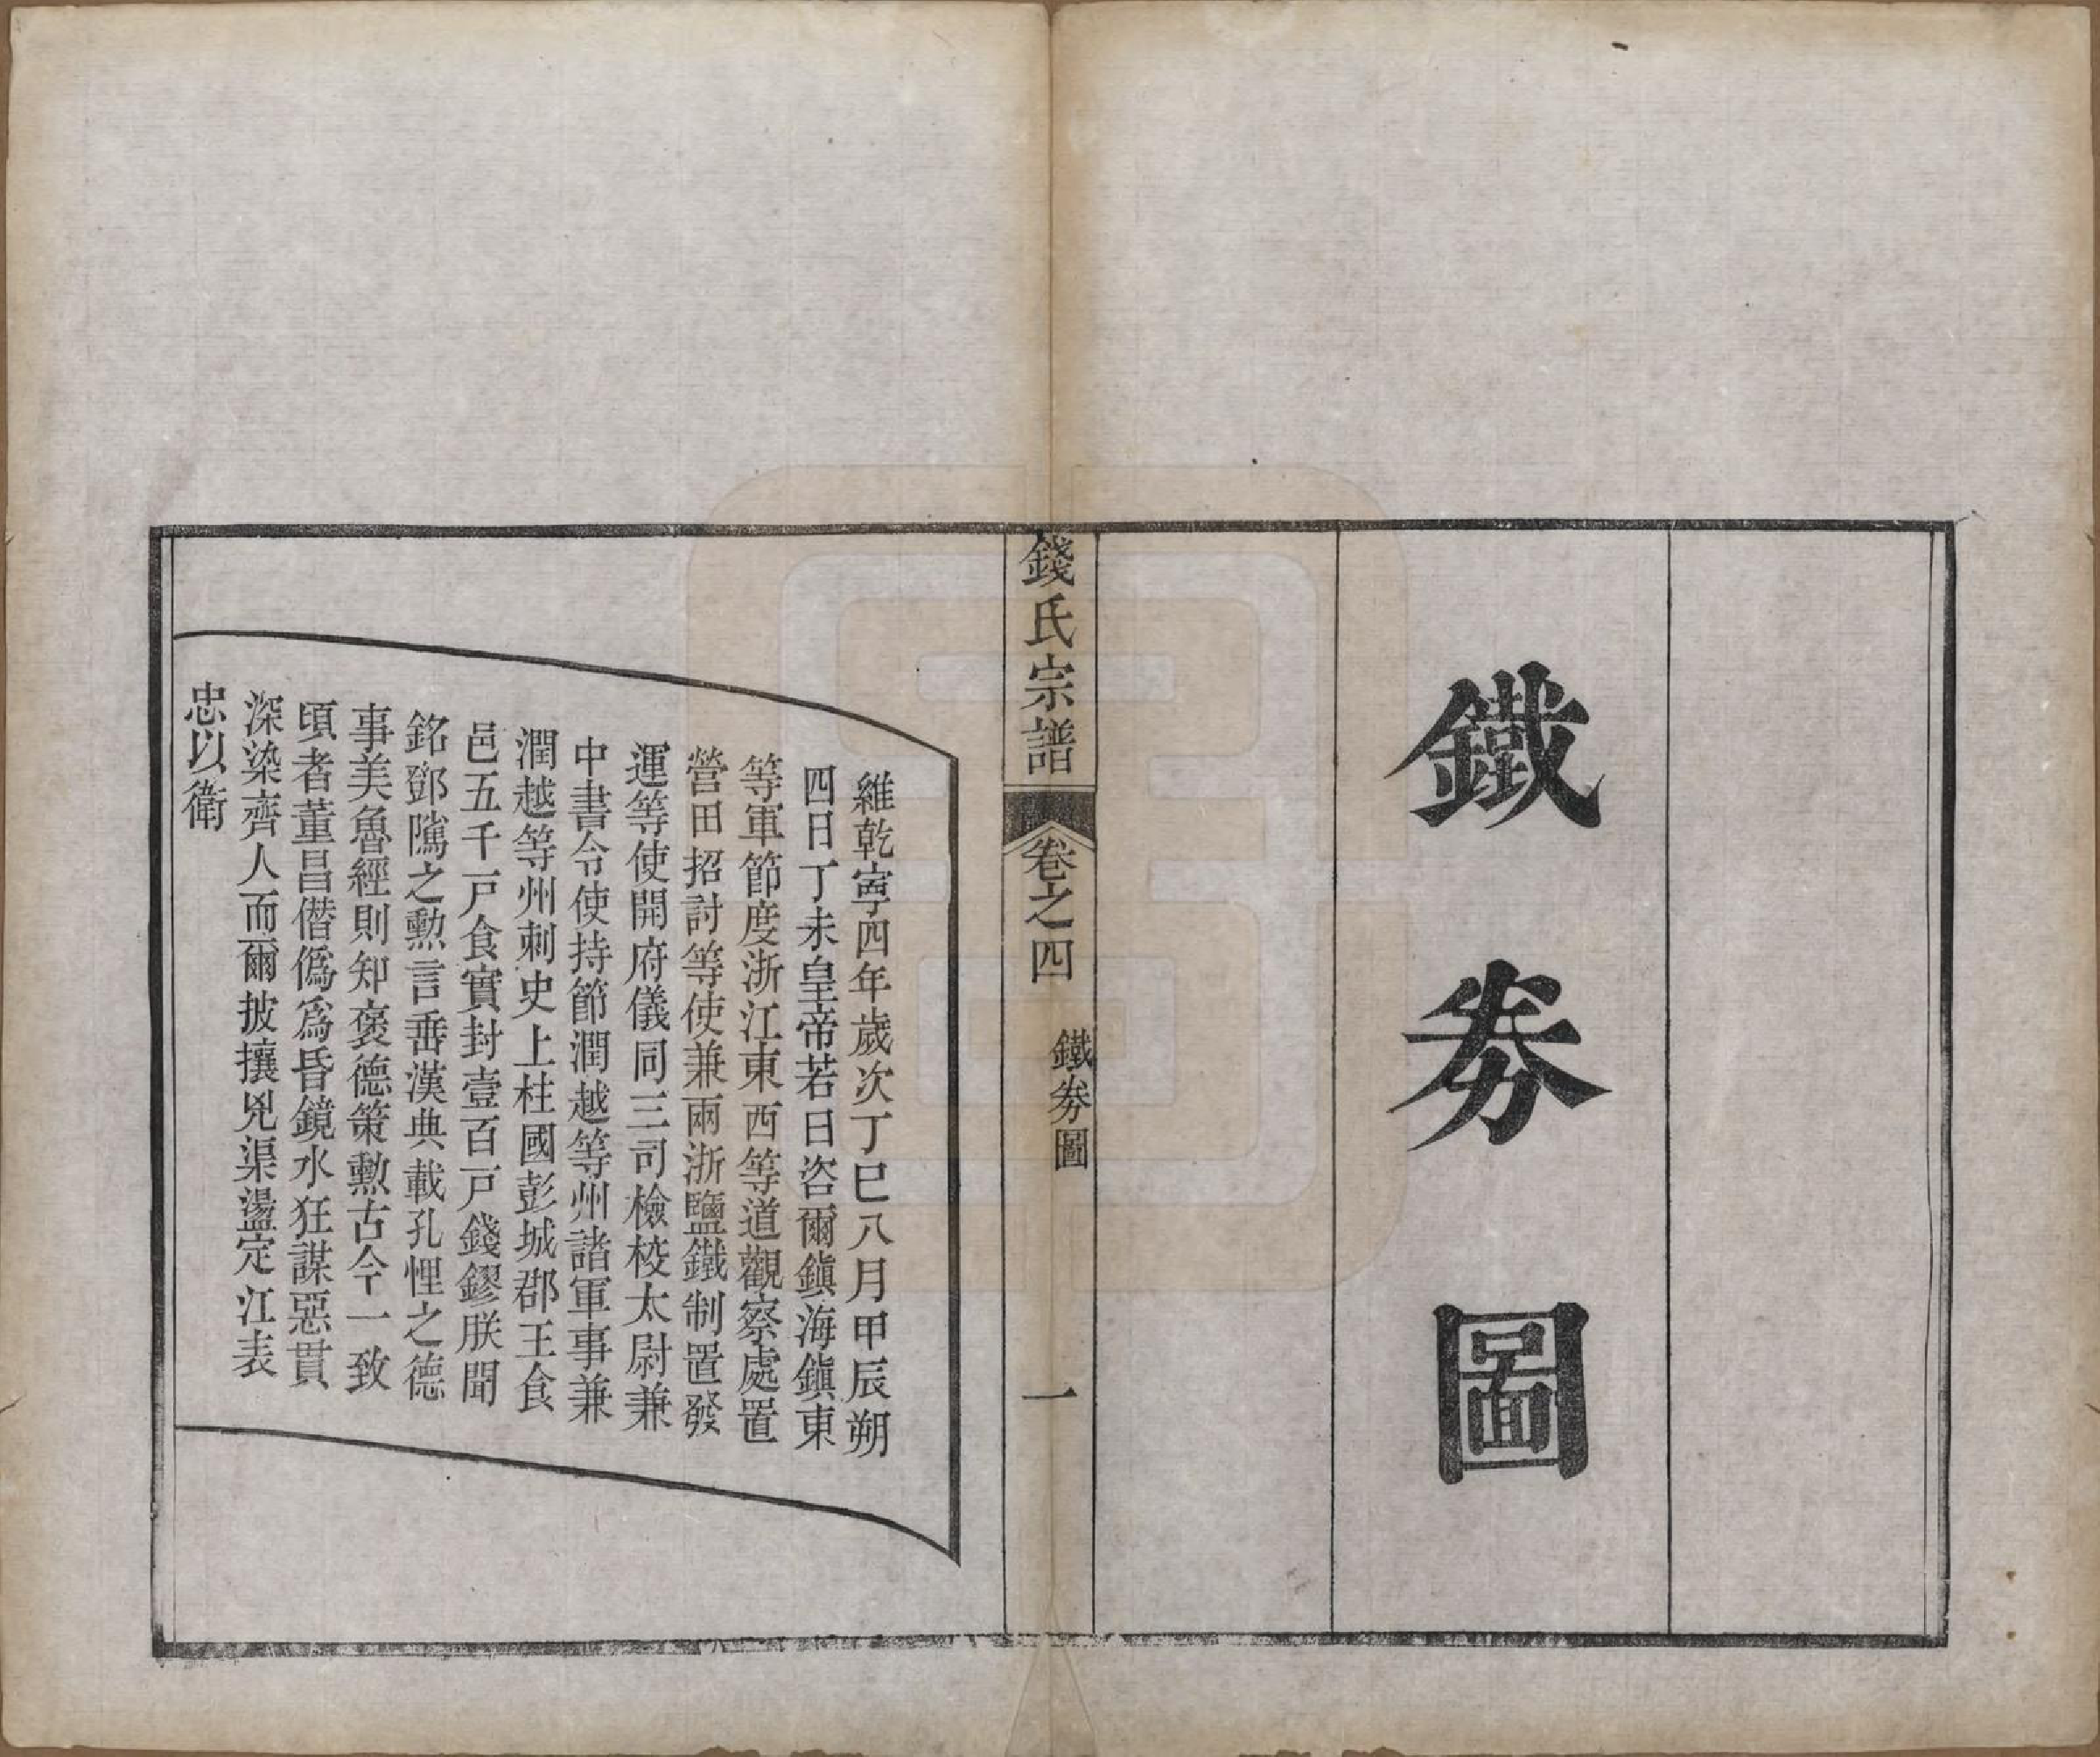 鐵劵圖
錢氏宗譜
卷之四
鐵劵圖
一
維乾寧四年歲次丁巳八月甲辰朔
四日丁未皇帝若曰咨爾鎭海鎭東
等軍節度浙江東西等道觀察處置
營田招討等使兼兩浙鹽鐵制置發
運等使開府儀同三司檢校太尉兼
中書令使持節潤越等州諸軍事兼
潤越等州刺史上柱國彭城郡王食
邑五千戸食實封壹百戸錢鏐朕聞
銘鄧隲之勲言垂漢典載孔悝之德
事美魯經則知褒德策勲古今一致
頃者董昌僭僞爲昏鏡水狂謀惡貫
深染齊人而爾披攘兇渠盪定江表
忠以衛